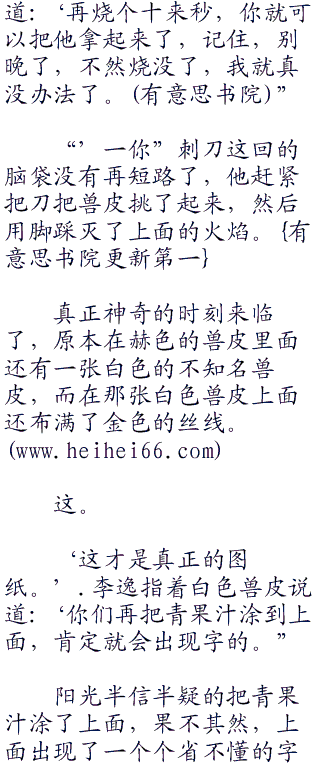 道：‘再烧个十来秒，你就可
以把他拿起来了，记住，别
晚了，不然烧没了，我就真
没办法了。(有意思书院)”
“’一你”刺刀这回的
脑袋没有再短路了，他赶紧
把刀把兽皮挑了起来，然后
用脚踩灭了上面的火焰。{有
意思书院更新第一}
真正神奇的时刻来临
了，原本在赫色的兽皮里面
还有一张白色的不知名兽
皮，而在那张白色兽皮上面
还布满了金色的丝线。
(www.heihei66.com)
这。
‘这才是真正的图
纸。’.李逸指着白色兽皮说
道：‘你们再把青果汁涂到上
面，肯定就会出现字的。”
阳光半信半疑的把青果
汁涂了上面，果不其然，上
面出现了一个个省不懂的字